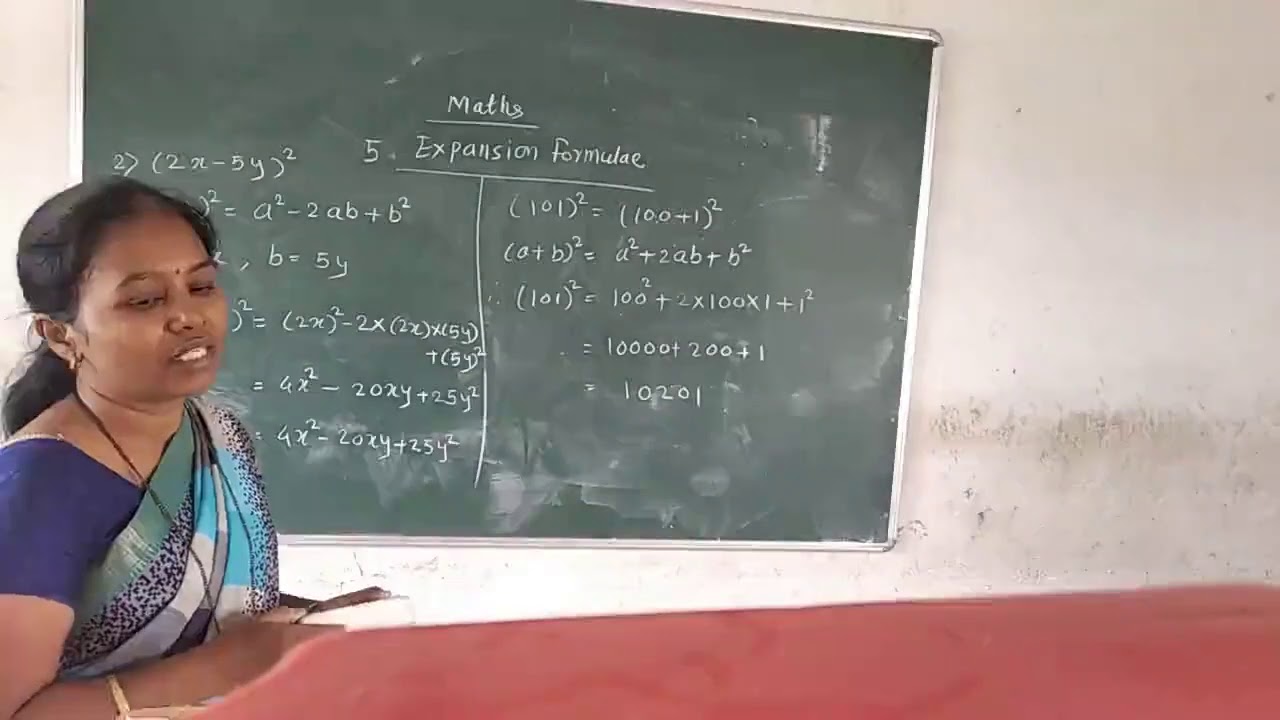 Maths
5. Expansion Formulae
2) (2x-5y)²
)² = a²-2ab+b²
, b = 5y
)² = (2x)²-2×(2x)×(5y)
+(5y)²
= 4x² - 20xy+25y²
= 4x²-20xy+25y²
(101)² = (100+1)²
(a+b)² = a²+2ab+b²
∴ (101)² = 100²+2×100×1+1²
= 10000+200+1
= 10201